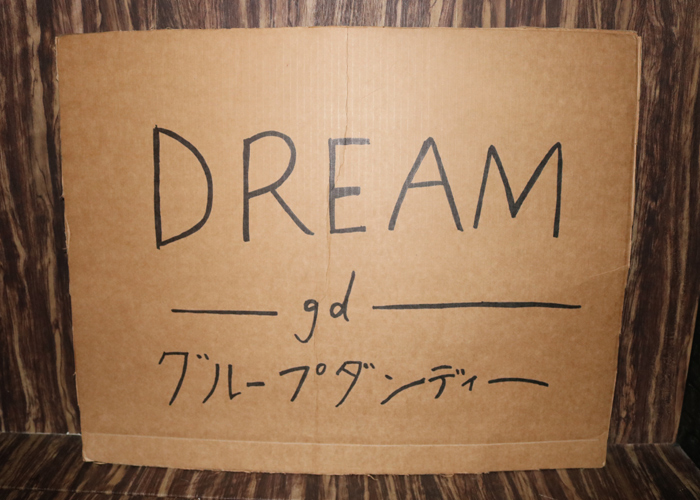 DREAM
gd
グループダンディー